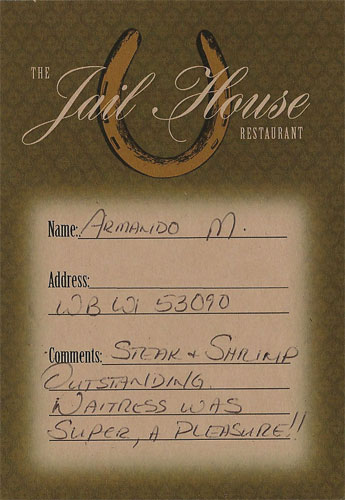 THE
Jail House
RESTAURANT
Name: ARMANDO M.
Address:
WB WI 53090
Comments: STEAK + SHRIMP
OUTSTANDING.
WAITRESS WAS
SUPER, A PLEASURE!!